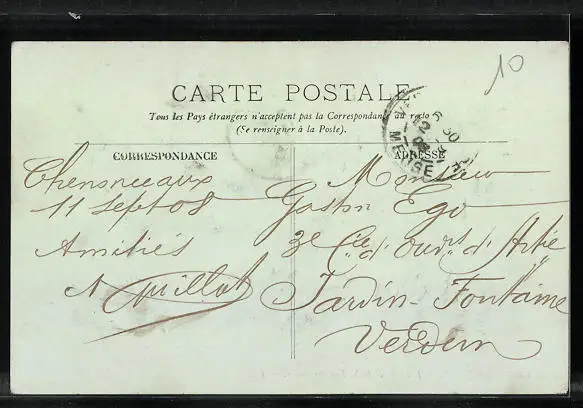 10
CARTE POSTALE
Tous les Pays étrangers n'acceptent pas la Correspondance au recto
(Se renseigner à la Poste).
CORRESPONDANCE
ADRESSE
MEUSE
Chenonceaux
11 Sept 08
Amitiés
Monsieur
Gaston Ego
3e Cie d'Ouvrs d'Artie
Jardin-Fontaine
Verdun